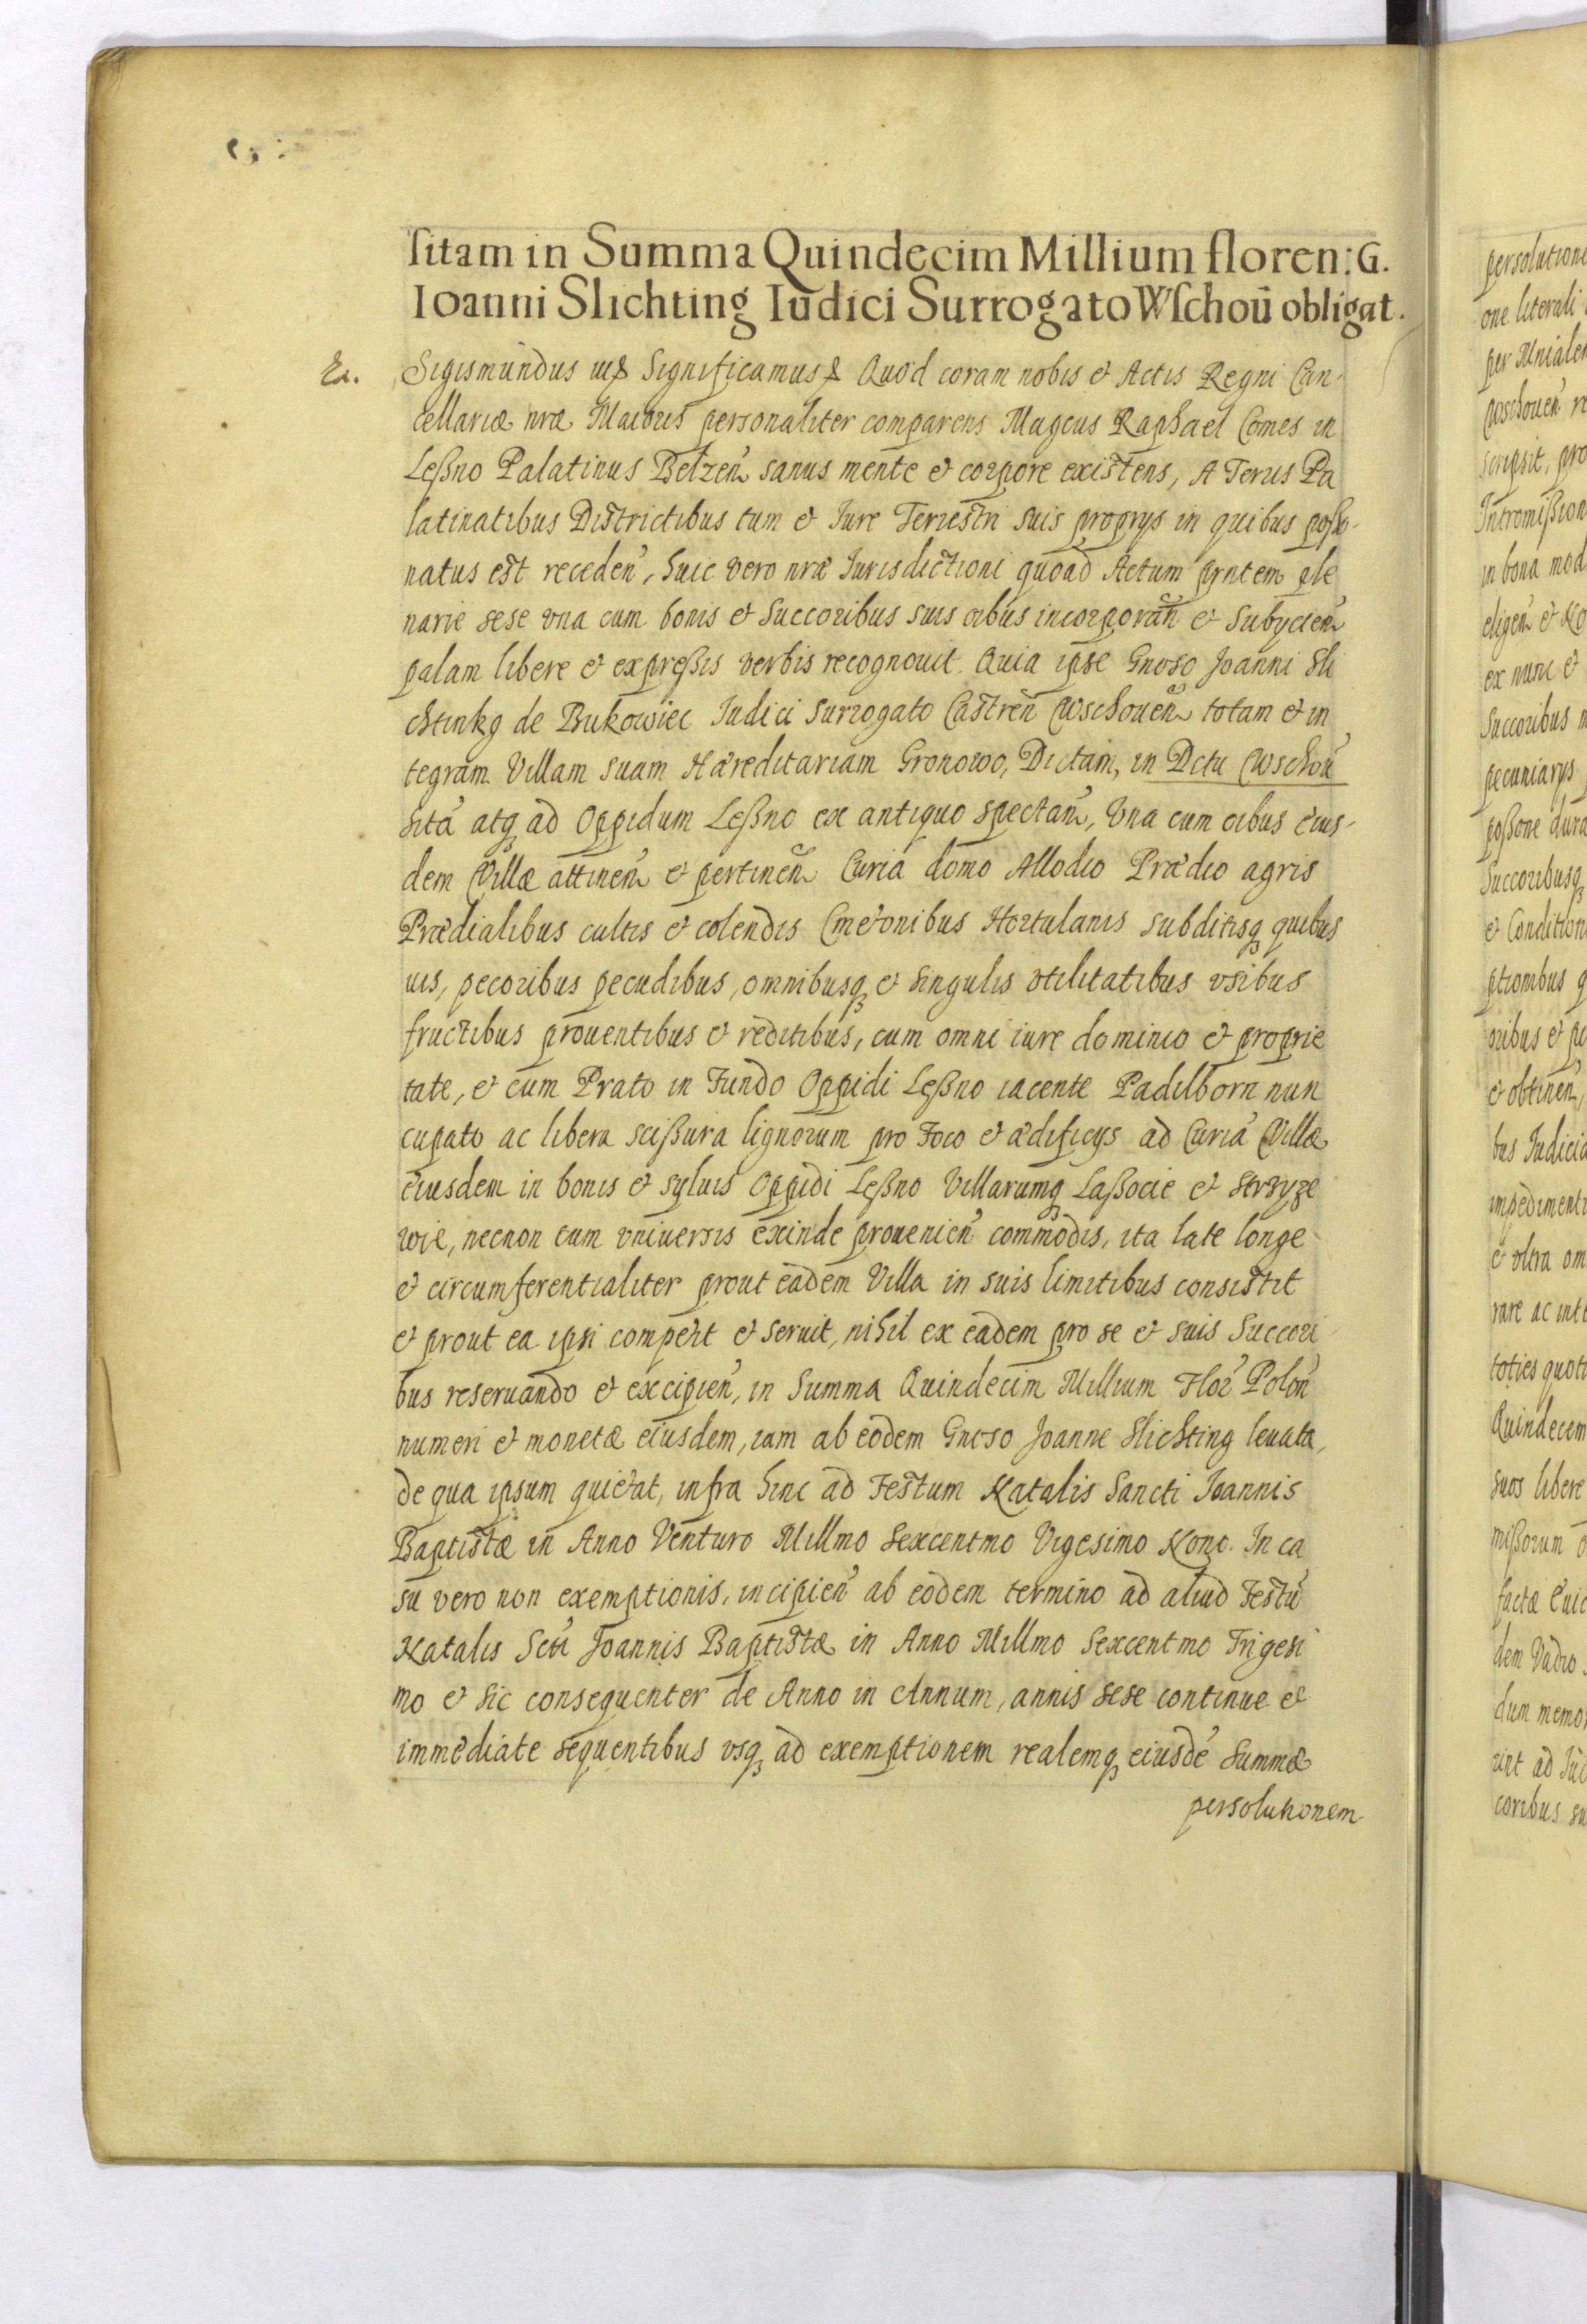 sitam in Summa Quindecim Millium floren: G.
Ioanni Slichting Iudici Surrogato Wschoū obligat.
Ex. Sigismundus iii & Significamus & Quod coram nobis et Actis Regni Can-
cellariæ nræ Maioris personaliter comparens Magcus Raphael Comes in
Leßno Palatinus Belzeñ sanus mente et corpore existens, A Terris Pa
latinatibus Districtibus tum et Iure Terrestri suis proprys in quibus posso-
natus est receden̄, huic vero nræ Iurisdictioni quoad Actum prntem ple
narie sese vna cum bonis et Succoribus suis oibus incorporan̄ et Subycien̄
palam libere et expreßis verbis recognouit. Quia ipse Gnoso Joanni Sli
chtinkg de Bukowiec Iudici surrogato Castren̄ Wschouen̄ totam et in
tegram Villam suam Hæreditariam Gronowo, Dictam, in Dctu Wschou̅
sitā atq ad Oppidum Leßno ex antiquo spectan̄, Vna cum oibus eius-
dem Villæ attinen̄ et pertinen̄ Curia domo Allodio Prædio agris
Prædialibus cultis et colendis Cmetonibus Hortulanis subditisq quibus
uis, pecoribus pecudibus, omnibusq et singulis vtilitatibus vsibus
fructibus prouentibus et reditibus, cum omni iure dominio et proprie
tate, et cum Prato in Fundo Oppidi Leßno iacente Padilborn nun
cupato ac libera scißura lignorum pro Foco et ædificys ad Curiā Villæ
eiusdem in bonis et syluis Oppidi Leßno Villarumq Laßocie et Strzyze
wie, necnon cum vniuersis exinde prouenien̄ commodis, ita late longe
et circumferentialiter prout eadem Villa in suis limitibus consistit
et prout ea ipsi competit et seruit, nihil ex eadem pro se et suis Succori
bus reseruando et excipien̄, in Summa Quindecim Millium Flor̄ Polon̄
numeri et monetæ eiusdem, iam ab eodem Gnoso Joanne Slichting leuata,
de qua ipsum quietat, infra hinc ad Festum Natalis Sancti Joannis
Baptistæ in Anno Venturo Millmo Sexcentmo Vigesimo Nono. In ca
su vero non exemptionis, incipien̄ ab eodem termino ad aliud Festū
Natalis Scti Joannis Baptistæ in Anno Millmo Sexcentmo Trigesi
mo et sic consequenter de Anno in Annum, annis sese continue et
immediate sequentibus vsq ad exemptionem realemq eiusdē Summæ
persolutionem